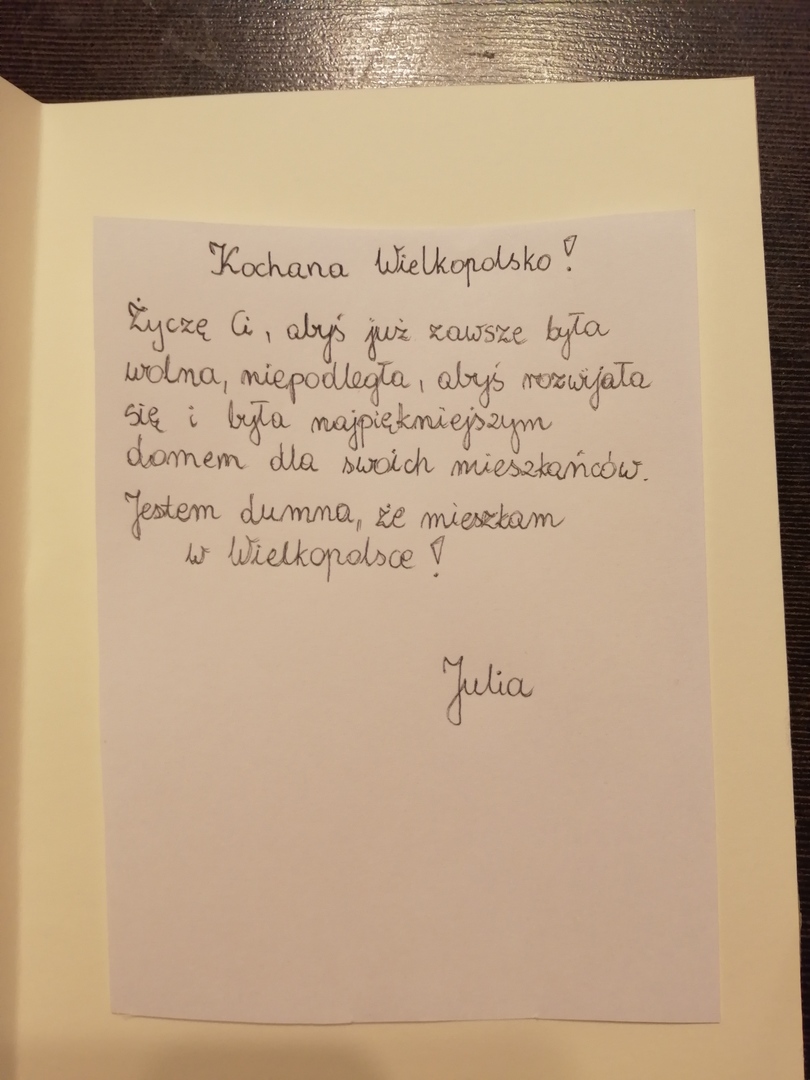 Kochana Wielkopolsko!
Życzę Ci, abyś już zawsze była
wolna, niepodległa, abyś rozwijała
się i była najpiękniejszym
domem dla swoich mieszkańców.
Jestem dumna, że mieszkam
w Wielkopolsce!
Julia